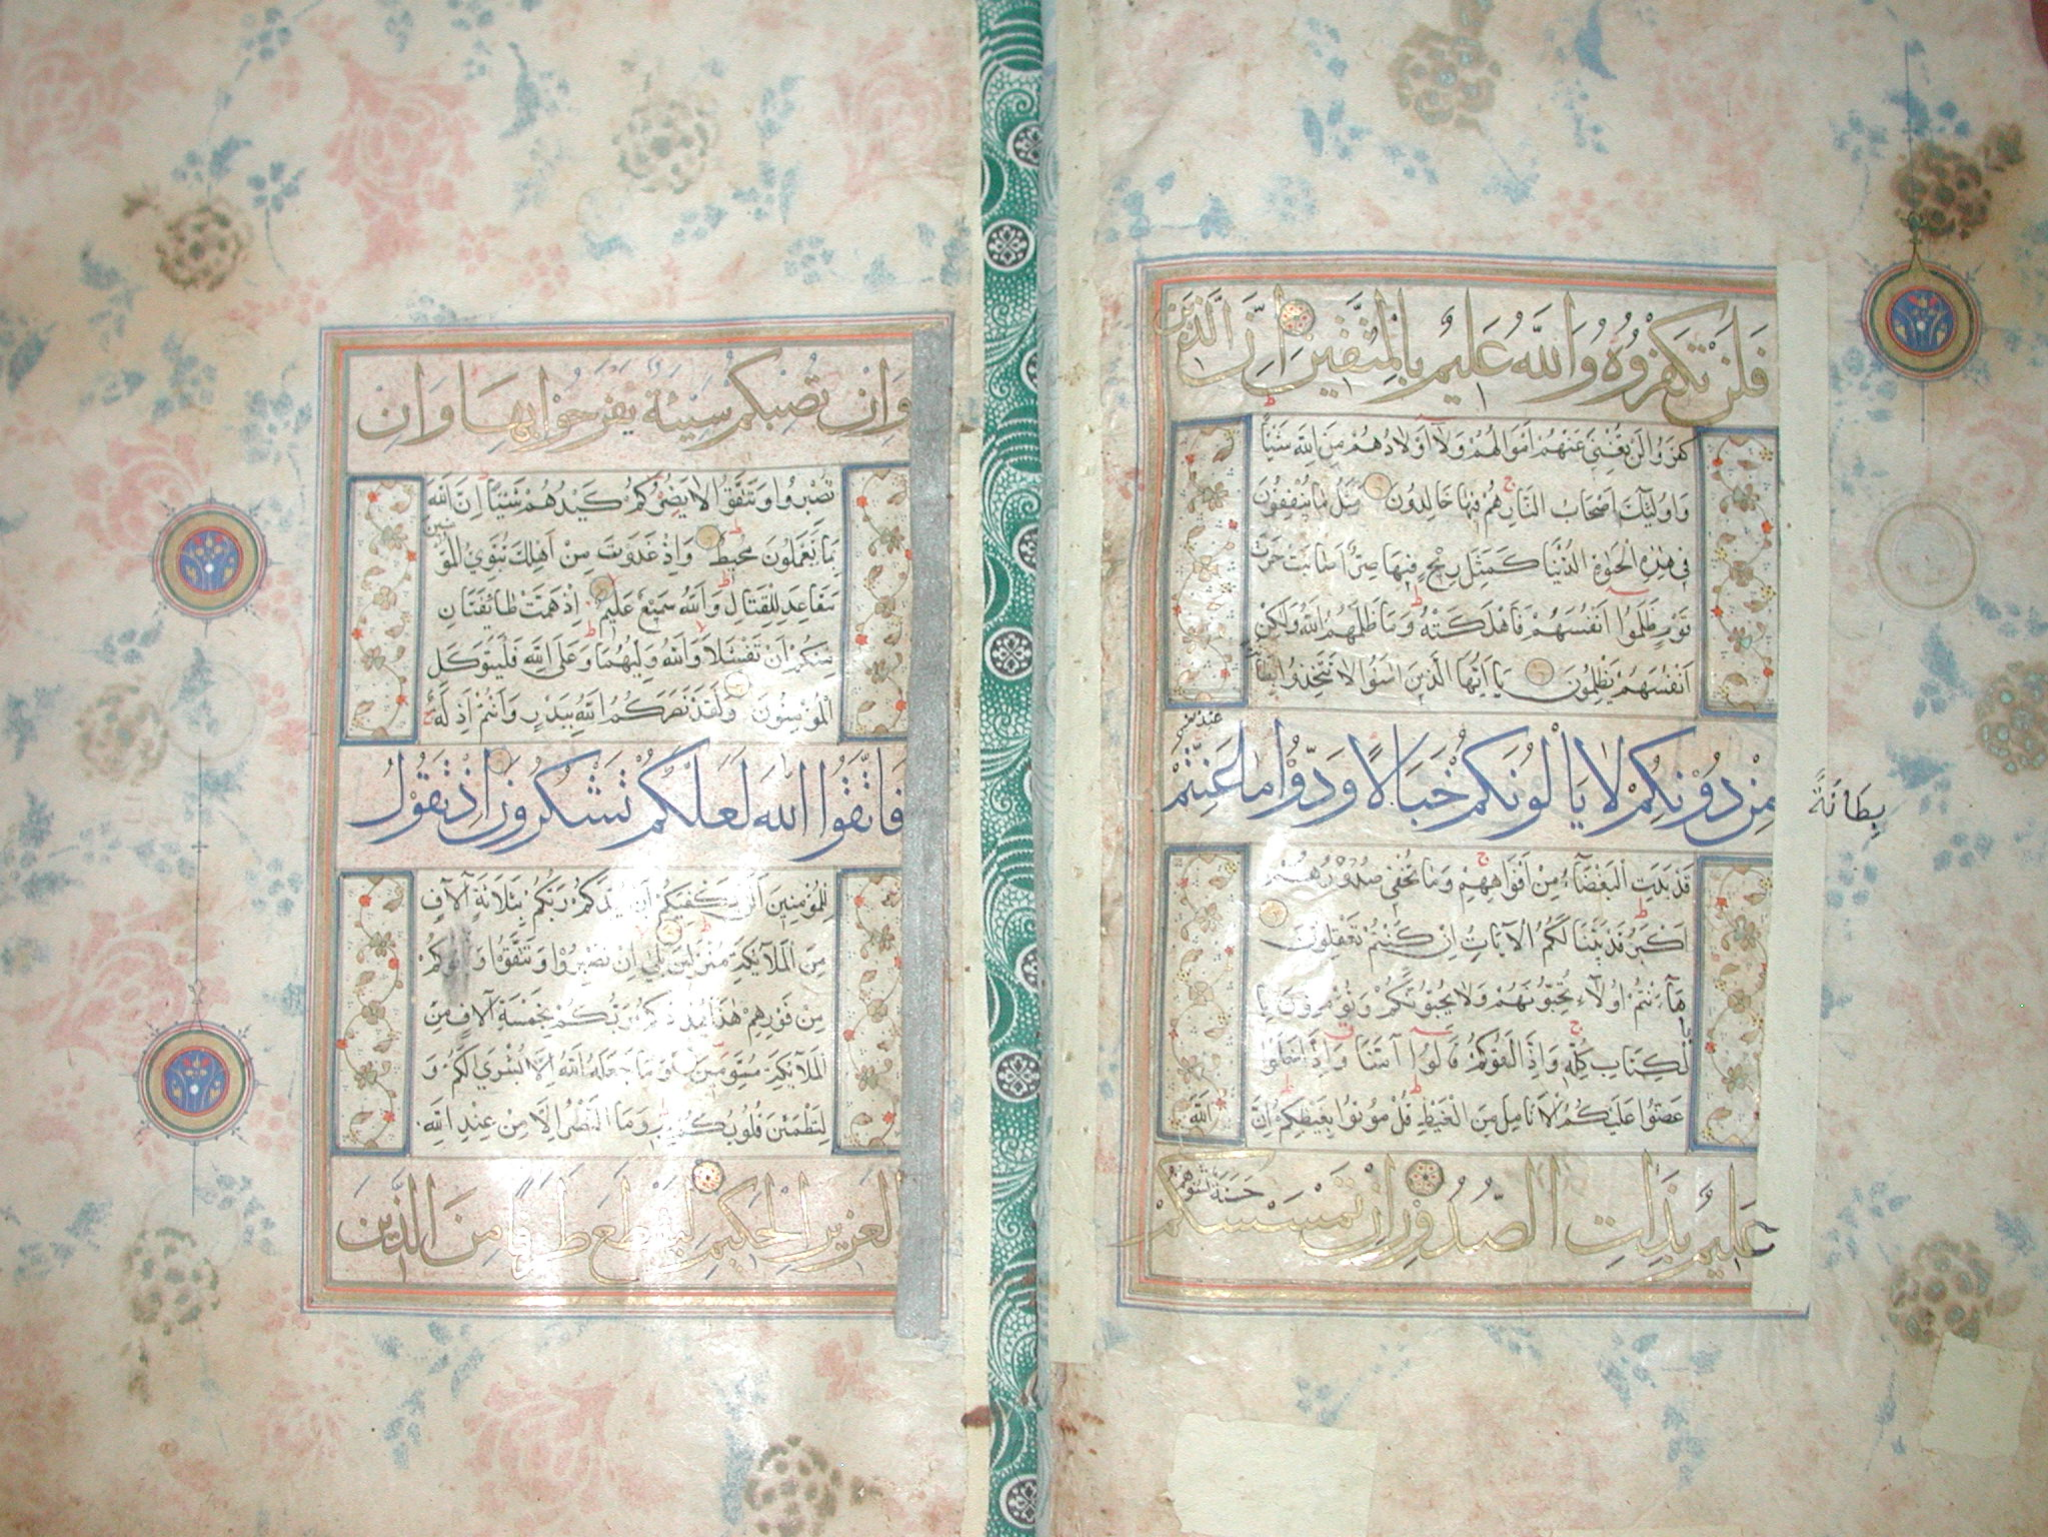 فَلَنْ تُكْفَرُوهُ وَاللَّهُ عَلِيمٌ بِالْمُتَّقِينَ اِنَّ الَّذِينَ
كَفَرُوا لَنْ تُغْنِىَ عَنْهُمْ اَمْوَالُهُمْ وَلَا اَوْلَادُهُمْ مِنَ اللَّهِ شَيْئًا
وَاُولٰئِكَ اَصْحَابُ النَّارِ هُمْ فِيهَا خَالِدُونَ مَثَلُ مَا يُنْفِقُونَ
فِى هٰذِهِ الْحَيٰوةِ الدُّنْيَا كَمَثَلِ رِيحٍ فِيهَا صِرٌّ اَصَابَتْ حَرْثَ
قَوْمٍ ظَلَمُوا اَنْفُسَهُمْ فَاَهْلَكَتْهُ وَمَا ظَلَمَهُمُ اللَّهُ وَلٰكِنْ
اَنْفُسَهُمْ يَظْلِمُونَ يَا اَيُّهَا الَّذِينَ اٰمَنُوا لَا تَتَّخِذُوا بِطَانَةً
مِنْ دُونِكُمْ لَا يَاْلُونَكُمْ خَبَالًا وَدُّوا مَا عَنِتُّمْ
بِطَانَةً
قَدْ بَدَتِ الْبَغْضَاءُ مِنْ اَفْوَاهِهِمْ وَمَا تُخْفِى صُدُورُهُمْ
اَكْبَرُ قَدْ بَيَّنَّا لَكُمُ الْاٰيَاتِ اِنْ كُنْتُمْ تَعْقِلُونَ
هَآ اَنْتُمْ اُولَآءِ تُحِبُّونَهُمْ وَلَا يُحِبُّونَكُمْ وَتُؤْمِنُونَ بِا
لْكِتَابِ كُلِّهِ وَاِذَا لَقُوكُمْ قَالُوا اٰمَنَّا وَاِذَا خَلَوْا
عَضُّوا عَلَيْكُمُ الْاَنَامِلَ مِنَ الْغَيْظِ قُلْ مُوتُوا بِغَيْظِكُمْ اِنَّ اللَّهَ
عَلِيمٌ بِذَاتِ الصُّدُورِ اِنْ تَمْسَسْكُمْ حَسَنَةٌ تَسُؤْهُمْ
وَاِنْ تُصِبْكُمْ سَيِّئَةٌ يَفْرَحُوا بِهَا وَاِنْ
تَصْبِرُوا وَتَتَّقُوا لَا يَضُرُّكُمْ كَيْدُهُمْ شَيْئًا اِنَّ اللَّهَ
بِمَا يَعْمَلُونَ مُحِيطٌ وَاِذْ غَدَوْتَ مِنْ اَهْلِكَ تُبَوِّئُ الْمُؤْمِنِينَ
مَقَاعِدَ لِلْقِتَالِ وَاللَّهُ سَمِيعٌ عَلِيمٌ اِذْ هَمَّتْ طَائِفَتَانِ
مِنْكُمْ اَنْ تَفْشَلَا وَاللَّهُ وَلِيُّهُمَا وَعَلَى اللَّهِ فَلْيَتَوَكَّلِ
الْمُؤْمِنُونَ وَلَقَدْ نَصَرَكُمُ اللَّهُ بِبَدْرٍ وَاَنْتُمْ اَذِلَّةٌ
فَاتَّقُوا اللَّهَ لَعَلَّكُمْ تَشْكُرُونَ اِذْ تَقُولُ
لِلْمُؤْمِنِينَ اَلَنْ يَكْفِيَكُمْ اَنْ يُمِدَّكُمْ رَبُّكُمْ بِثَلَاثَةِ اٰلَافٍ
مِنَ الْمَلَآئِكَةِ مُنْزَلِينَ بَلٰى اِنْ تَصْبِرُوا وَتَتَّقُوا وَيَاْتُوكُمْ
مِنْ فَوْرِهِمْ هٰذَا يُمْدِدْكُمْ رَبُّكُمْ بِخَمْسَةِ اٰلَافٍ مِنَ
الْمَلَآئِكَةِ مُسَوِّمِينَ وَمَا جَعَلَهُ اللَّهُ اِلَّا بُشْرٰى لَكُمْ وَ
لِتَطْمَئِنَّ قُلُوبُكُمْ بِهِ وَمَا النَّصْرُ اِلَّا مِنْ عِنْدِ اللَّهِ
الْعَزِيزِ الْحَكِيمِ لِيَقْطَعَ طَرَفًا مِنَ الَّذِينَ